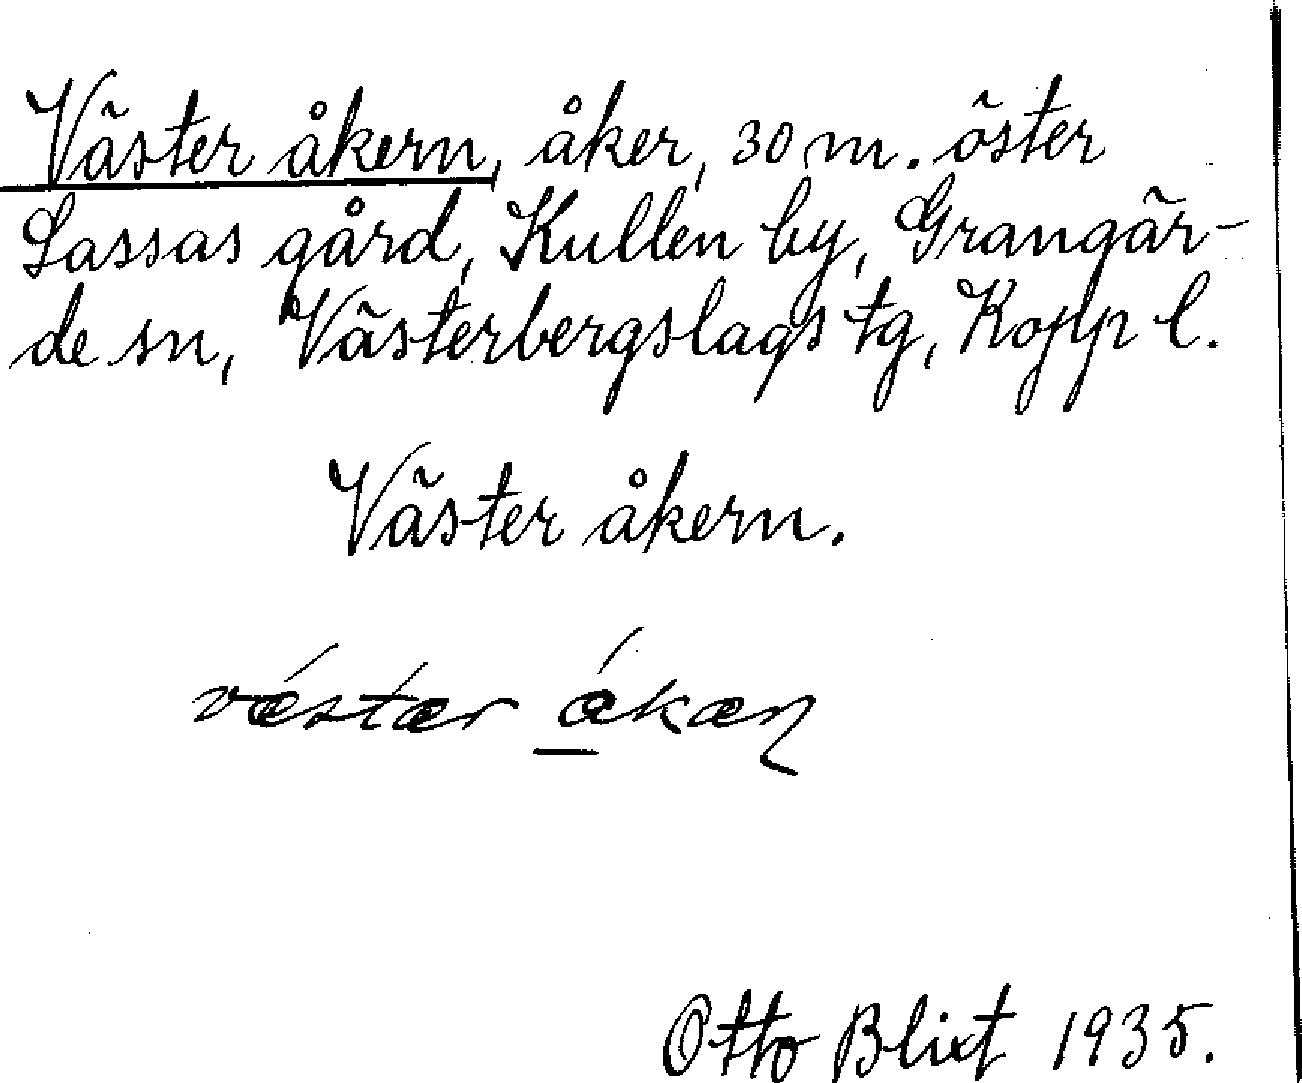 Väster åkern, åker, 30 m. öster
Lassas gård, Kullen by, Grangär-
de sn, Västerbergslags tg, Kopp l.
Väster åkern.
vǽstær ǻkæɳ
Otto Blixt 1935.